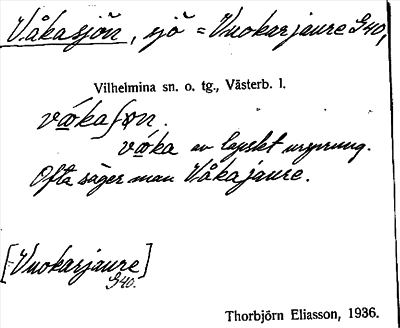 Våkasjön, sjö = Vuokarjaure G40,
Vilhelmina sn. o. tg., Västerb. l.
våka
våka av lapskt ursprung.
Ofta säger man Våkajaure.
[Vuokarjaure]
G40.
Thorbjörn Eliasson, 1936.